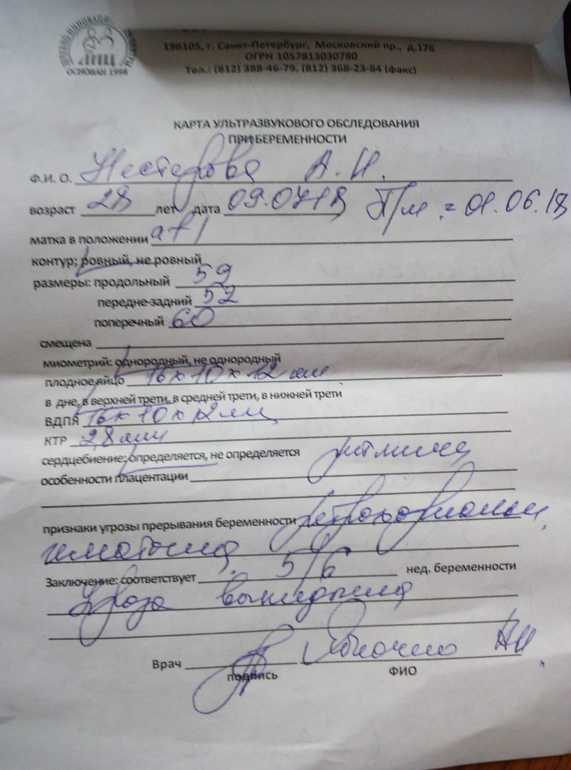 ОСНОВАН 1998
196105, г. Санкт-Петербург, Московский пр., д.176
ОГРН 1057813030780
Тел.: (812) 388-46-79, (812) 368-23-84 (факс)
КАРТА УЛЬТРАЗВУКОВОГО ОБСЛЕДОВАНИЯ
ПРИ БЕРЕМЕННОСТИ
Ф.И.О. Нестерова А.Н.
возраст 28 лет дата 09.07.18 П/м = 01.06.18
матка в положении afl
контур; ровный, не ровный
размеры: продольный 59
передне-задний 52
поперечный 60
смещена
миометрий: однородный, не однородный
плодное яйцо 16 х 10 х 12 мм
в дне, в верхней трети, в средней трети, в нижней трети
ВДПЯ 16 х 10 х 12 мм
КТР 2,8 мм
сердцебиение; определяется, не определяется ритмич
особенности плацентации
признаки угрозы прерывания беременности ретрохориальн.
гематома
Заключение: соответствует 5/6 нед. беременности
Угроза выкидыша
Врач
подпись ФИО